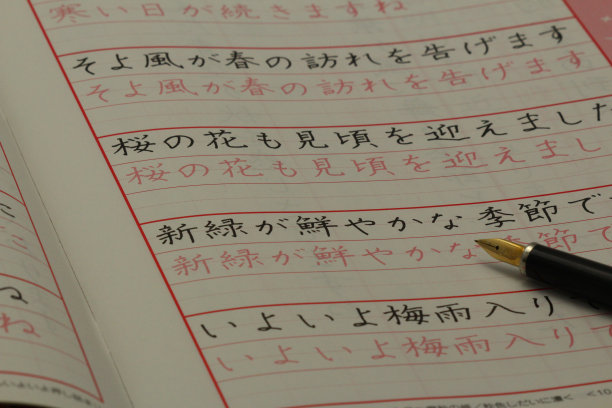 寒い日が続きますね
そよ風が春の訪れを告げます
そよ風が春の訪れを告げます
桜の花も見頃を迎えました
桜の花も見頃を迎えまし
新緑が鮮やかな季節で
新緑が鮮やかな季節で
いよいよ梅雨入り
いよいよ梅雨入り
ね